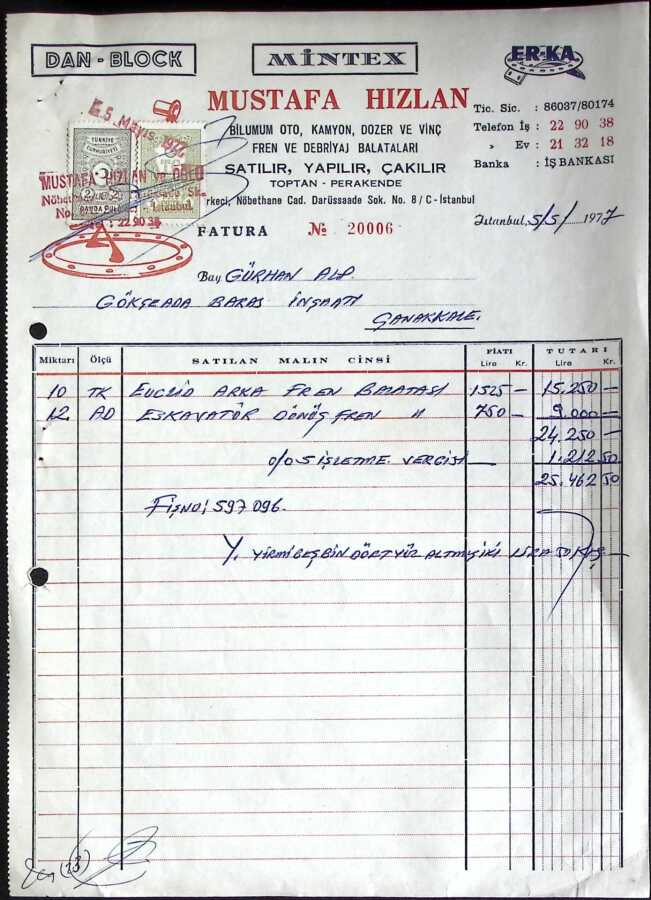 DAN - BLOCK
MİNTEX
ER-KA
MUSTAFA HIZLAN
BİLUMUM OTO, KAMYON, DOZER VE VİNÇ
FREN VE DEBRİYAJ BALATALARI
SATILIR, YAPILIR, ÇAKILIR
TOPTAN - PERAKENDE
rkeci, Nöbethane Cad. Darüssaade Sok. No. 8 / C - İstanbul
Tic. Sic. : 86037/80174
Telefon İş : 22 90 38
» Ev : 21 32 18
Banka : İŞ BANKASI
5 Mayıs 1977
TÜRKİYE
CUMHURİYETİ
DAMGA PULU
MUSTAFA HIZLAN ve OĞLU
Nöbethane
Sk.
No.
İstanbul
: 22 90 38
FATURA № 20006
İstanbul, 5/5/1977
Bay GÜRHAN ALP.
GÖKÇEADA BARAJ İNŞAATI
ÇANAKKALE.
Miktarı Ölçü SATILAN MALIN CİNSİ FİATI Lira Kr. TUTARI Lira Kr.
10 TK EUCLID ARKA FREN BALATASI 1525 — 15.250 —
12 AD ESKAVATÖR DÖNÜŞ FREN " 750 — 9.000 —
24.250 —
%5 İŞLETME VERGİSİ — 1.212 50
25.462 50
FİŞNO: 597096.
Y. YİRMİBEŞBİNDÖRTYÜZALTMIŞİKİ LİRA 50 KRŞ —
(13)